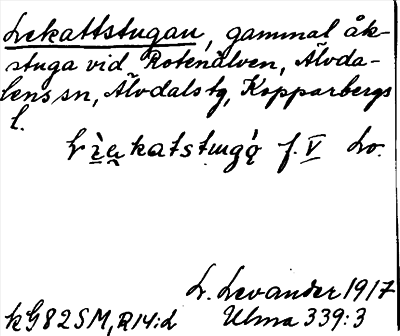 Lekattstugan, gammal åk-
stuga vid Rotenälven, Älvda-
lens sn, Älvdals tg, Kopparbergs
l.
f. V Lo.
L. Levander 1917
KG82SM, R14:d Ulma 339:3